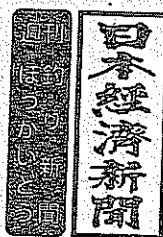 日本經濟新聞
週刊
釣り新聞
ほっかいどう